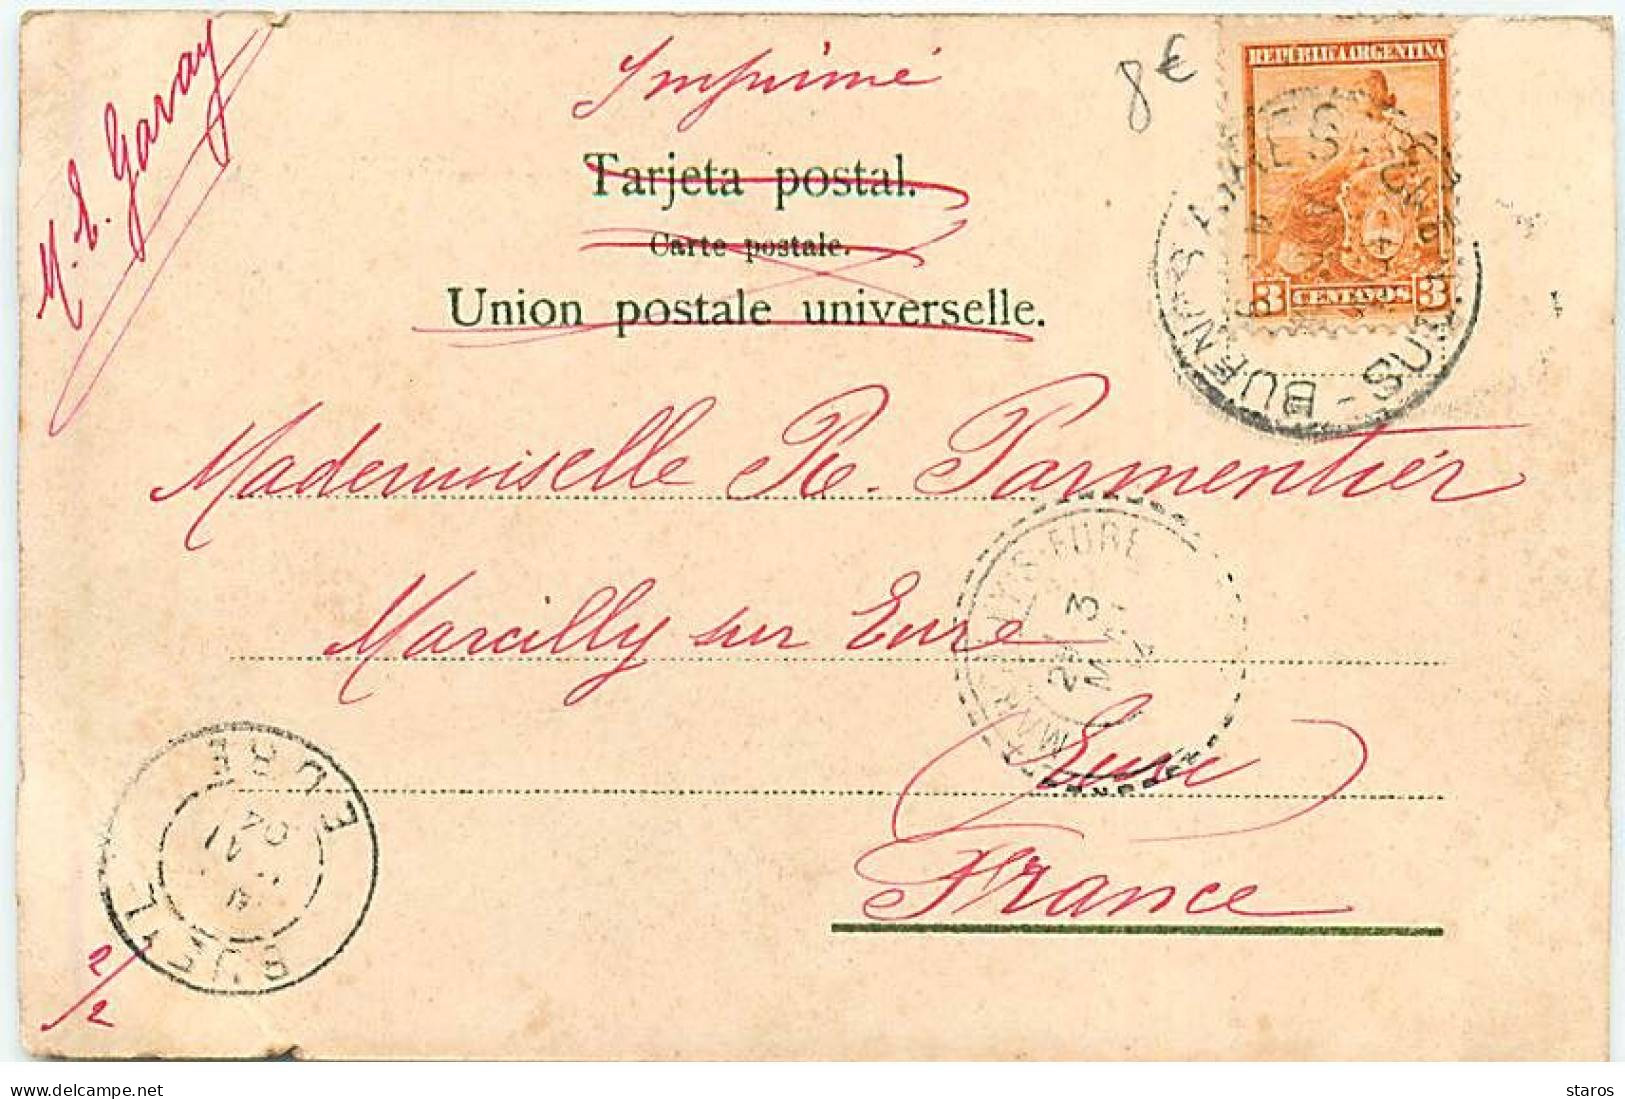 M. E. Garay
Imprimé
8€
REPUBLICA ARGENTINA
3 CENTAVOS 3
BUENOS AIRES
Tarjeta postal.
Carte postale.
Union postale universelle.
Mademoiselle R. Parmentier
Marcilly sur Eure
Eure
France
EURE
3
BUEIL
EURE
2/2
delcampe.net
staros